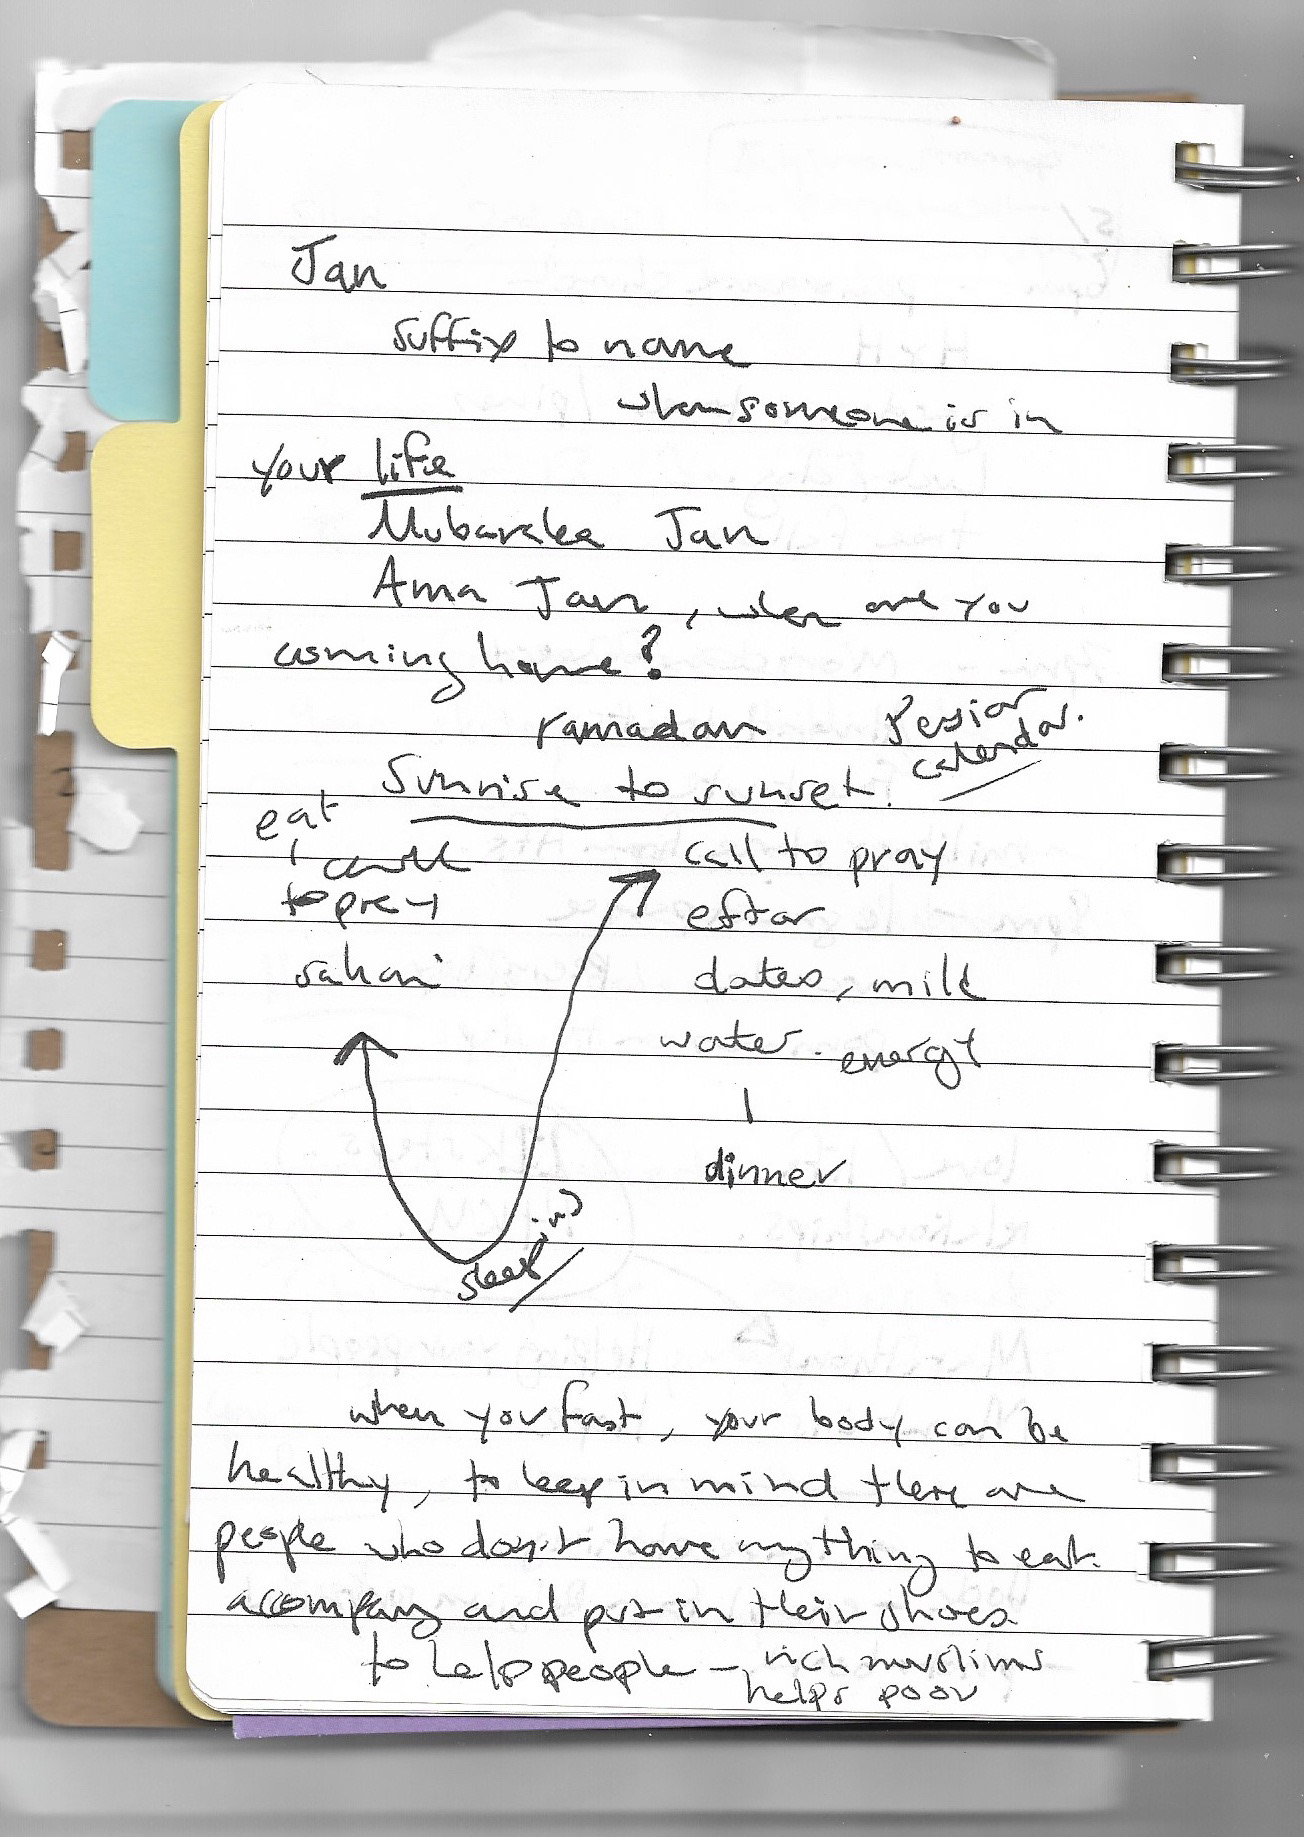 Jan
suffix to name
when someone is in
your life
Mubaraka Jan
Ama Jan, when are you
coming home?
ramadan
Persian
calendar.
Sunrise to sunset.
eat
call to pray
to pray
eftar
sahari
dates, milk
water. energy
dinner
sleeping
when you fast, your body can be
healthy, to keep in mind there are
people who don't have anything to eat.
accompany and put in their shoes
to help people – rich muslims
helps poor